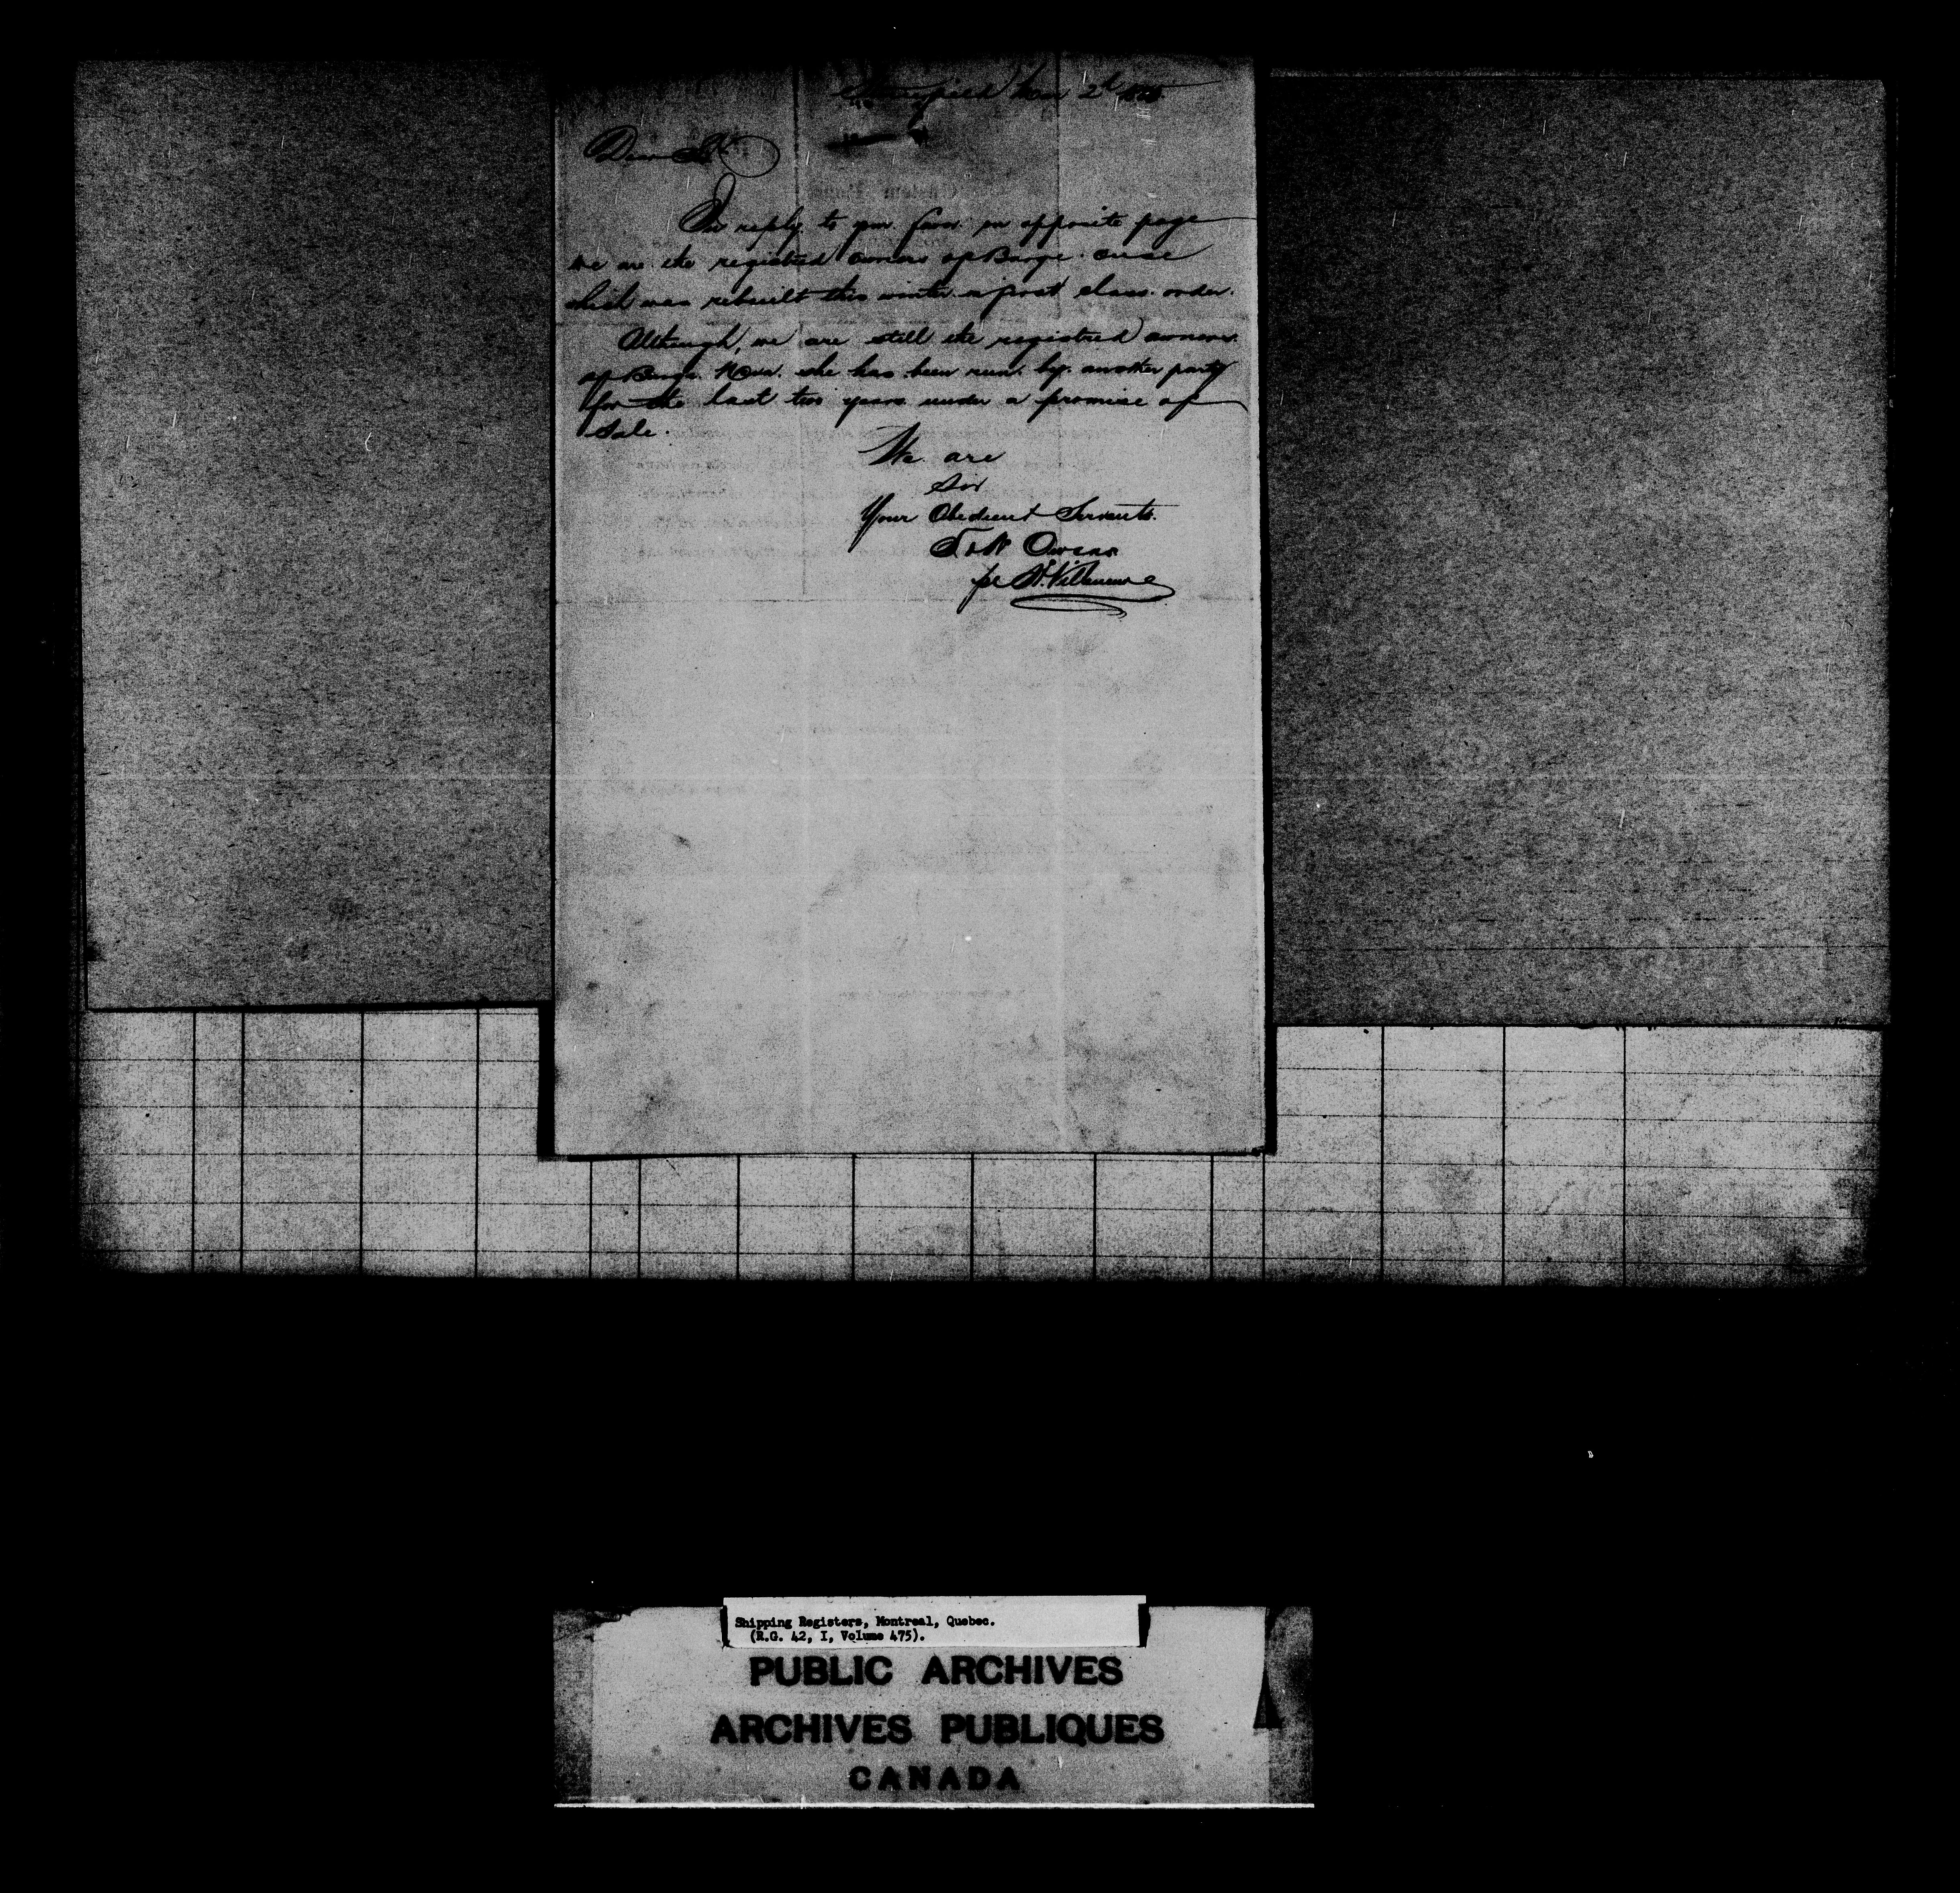 2d
Dear Sir
In reply to your favor on opposite page
we are the registered owners of Barge
which was rebuilt this winter in first class order.
Although, we are still the registered owners
of Barge she has been run by another party
for the last two years under a promise of
Sale.
We are
Sir
Your Obedient Servants.
T & W Owens
per Villeneuve
Shipping Registers, Montreal, Quebec.
(R.G. 42, I, Volume 475).
PUBLIC ARCHIVES
ARCHIVES PUBLIQUES
CANADA